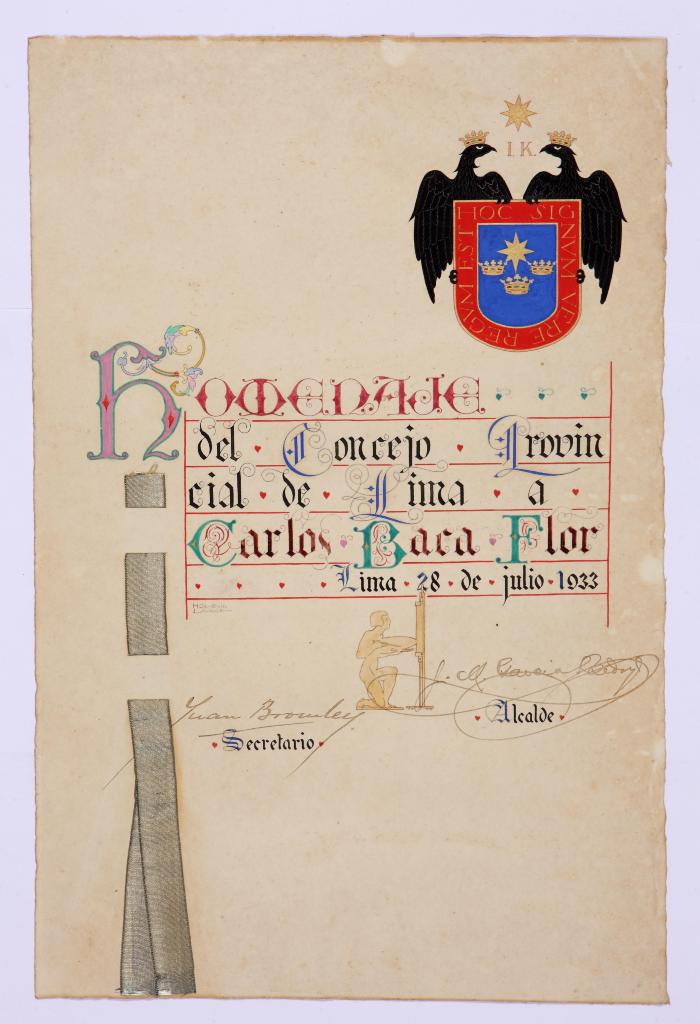 I. K.
HOC SIGNVM VERE REGVM EST
Homenaje
del Concejo Provin
cial de Lima a
Carlos Baca Flor
Lima 28 de julio 1933
Juan Bromley
Secretario
Alcalde